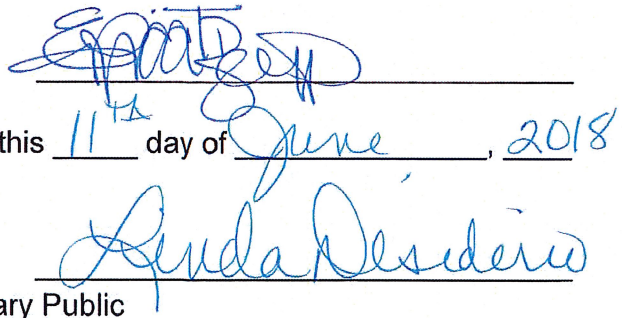 this 11th day of June, 2018
Linda Desiderio
ary Public